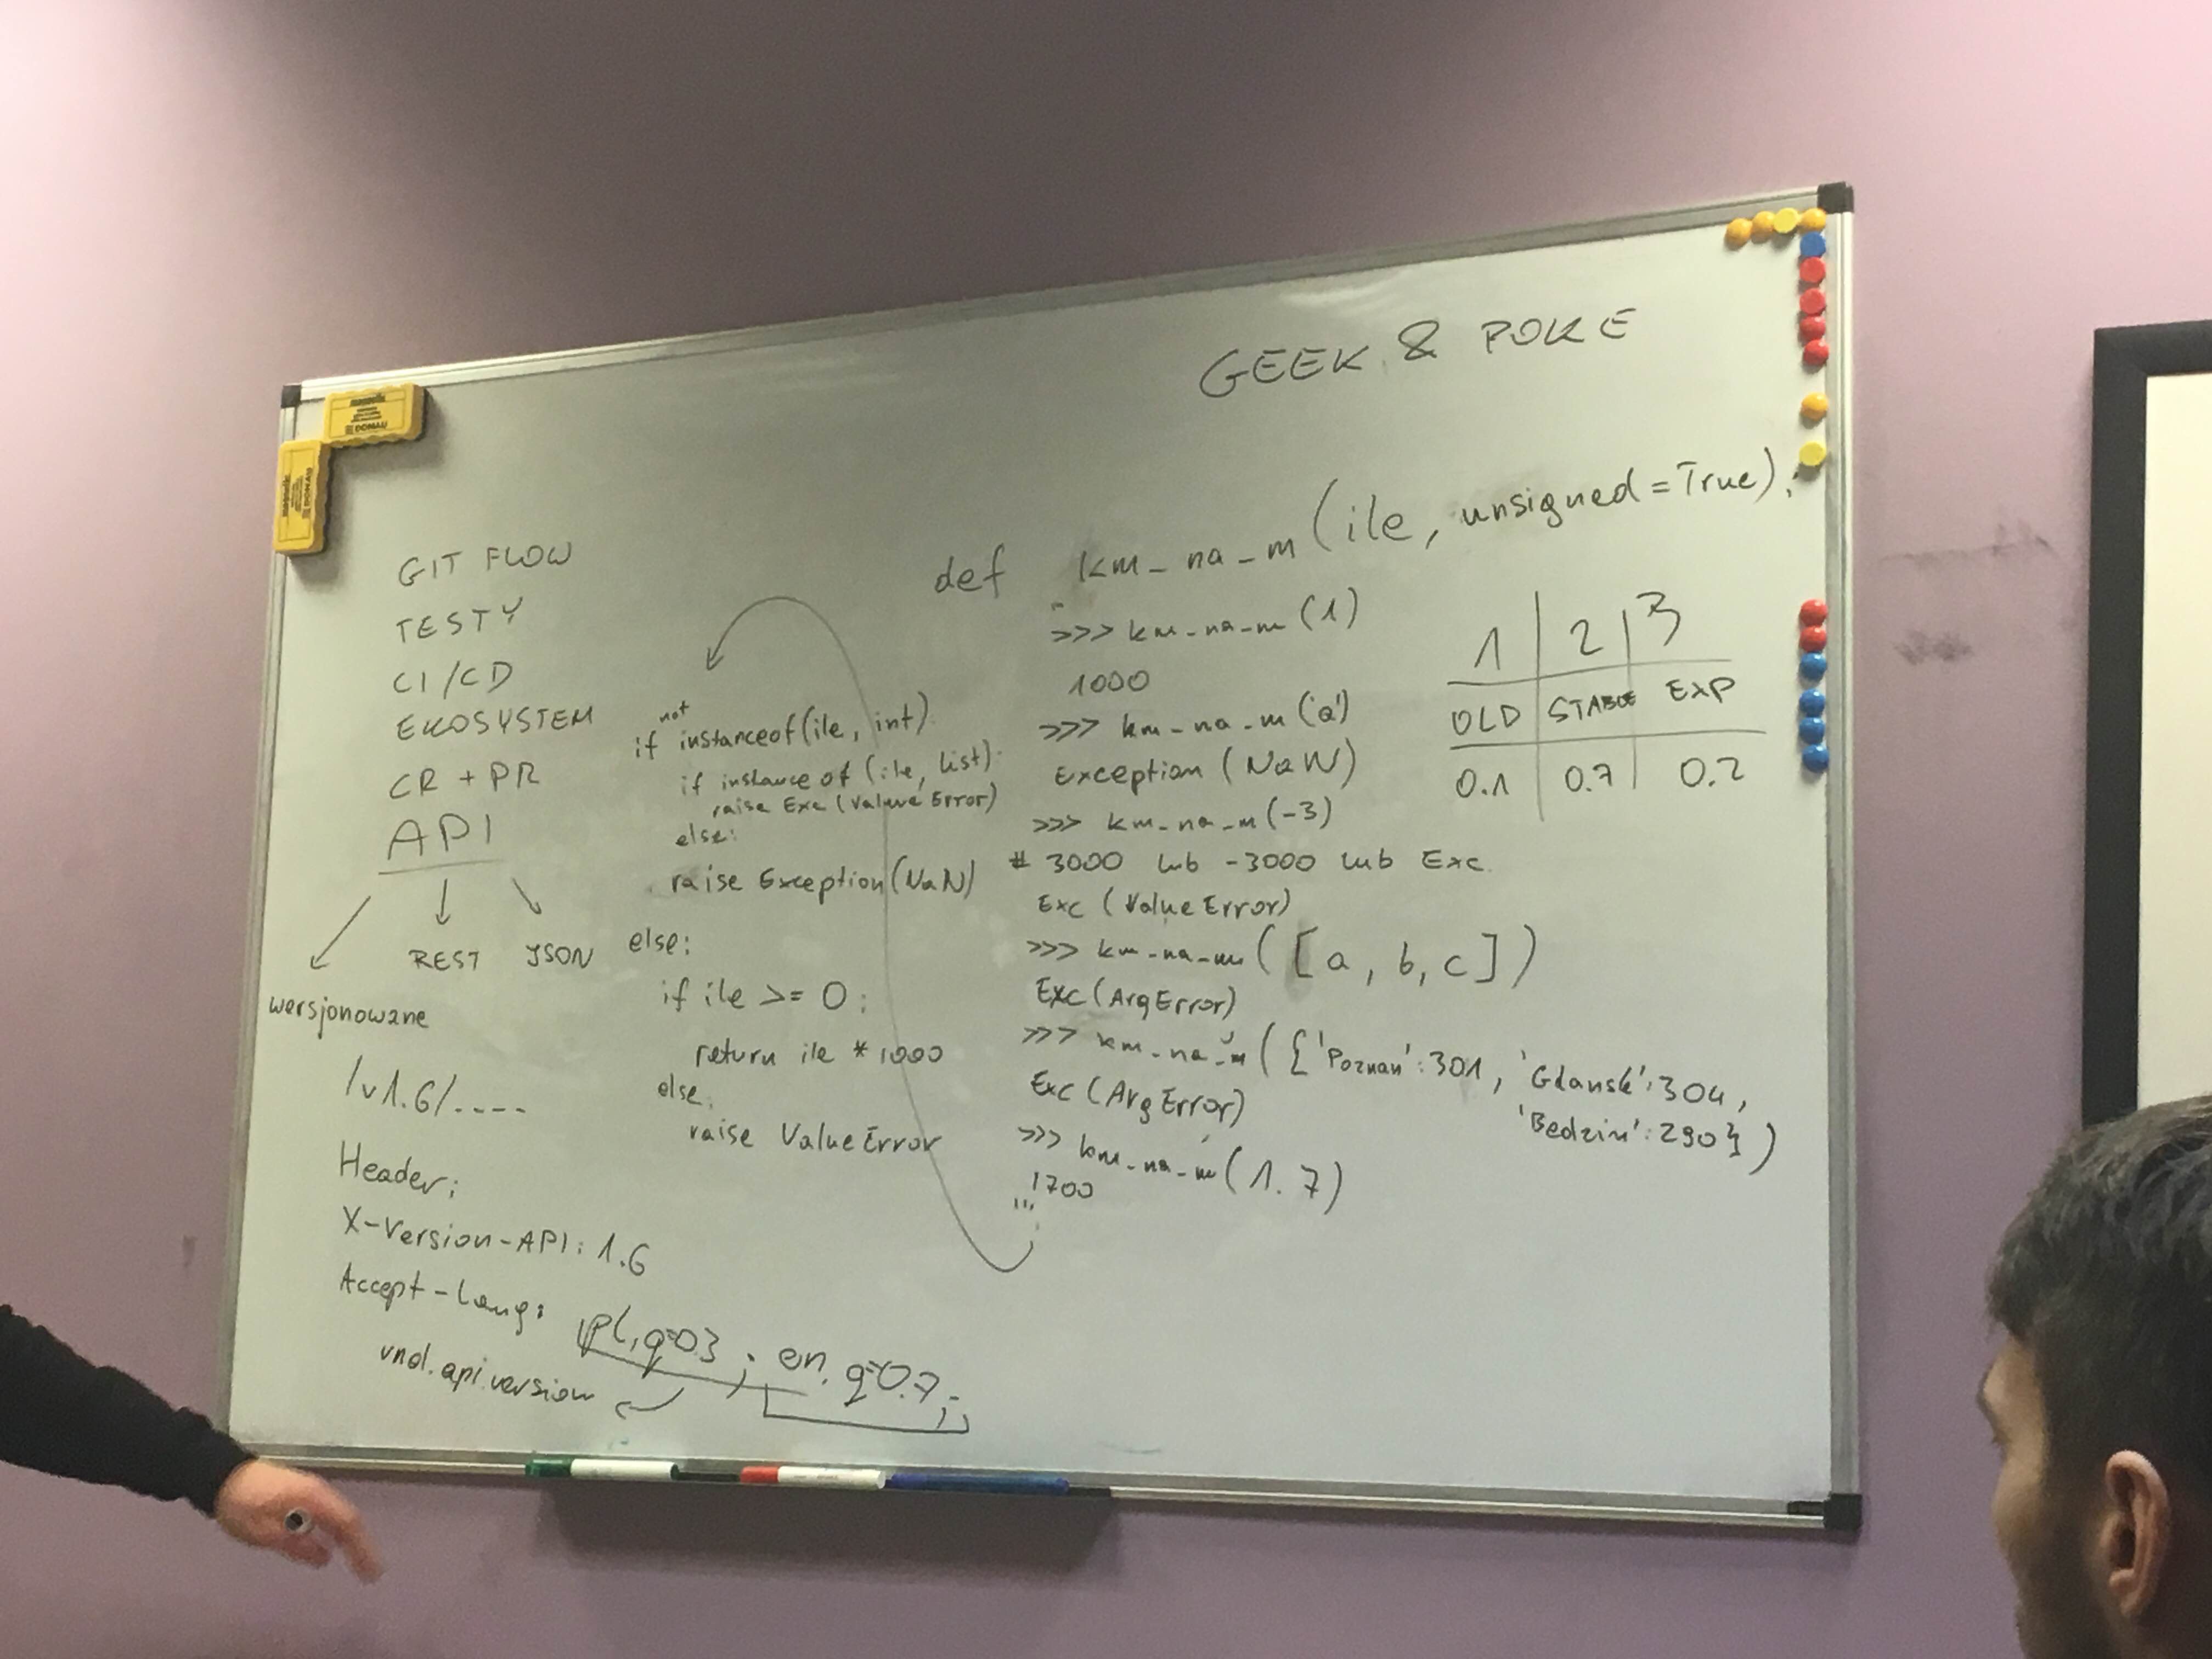 GEEK & POKE
DONAU
DONAU
GIT FLOW
TESTY
CI/CD
EKOSYSTEM
CR + PR
API
REST
JSON
wersjonowane
/v1.6/----
Header:
X-Version-API: 1.6
Accept-Lang: pl, q=0.3; en, q=0.7;
vnd.api.version
not
if instanceof(ile, int)
if instance of (ile, list):
raise Exc (Value Error)
else:
raise Exception(NaN)
else:
if ile >= 0:
return ile * 1000
else:
raise ValueError
def km_na_m(ile, unsigned=True):
>>> km_na_m(1)
1000
>>> km_na_m('a')
Exception (NaN)
>>> km_na_m(-3)
# 3000 lub -3000 lub Exc.
Exc (ValueError)
>>> km_na_m([a, b, c])
Exc(ArgError)
>>> km_na_m({'Poznań':301, 'Gdansk':304,
'Bedzin':290})
Exc(ArgError)
>>> km_na_m(1.7)
1700
"""
1 2 3
OLD STABLE EXP
0.1 0.7 0.2